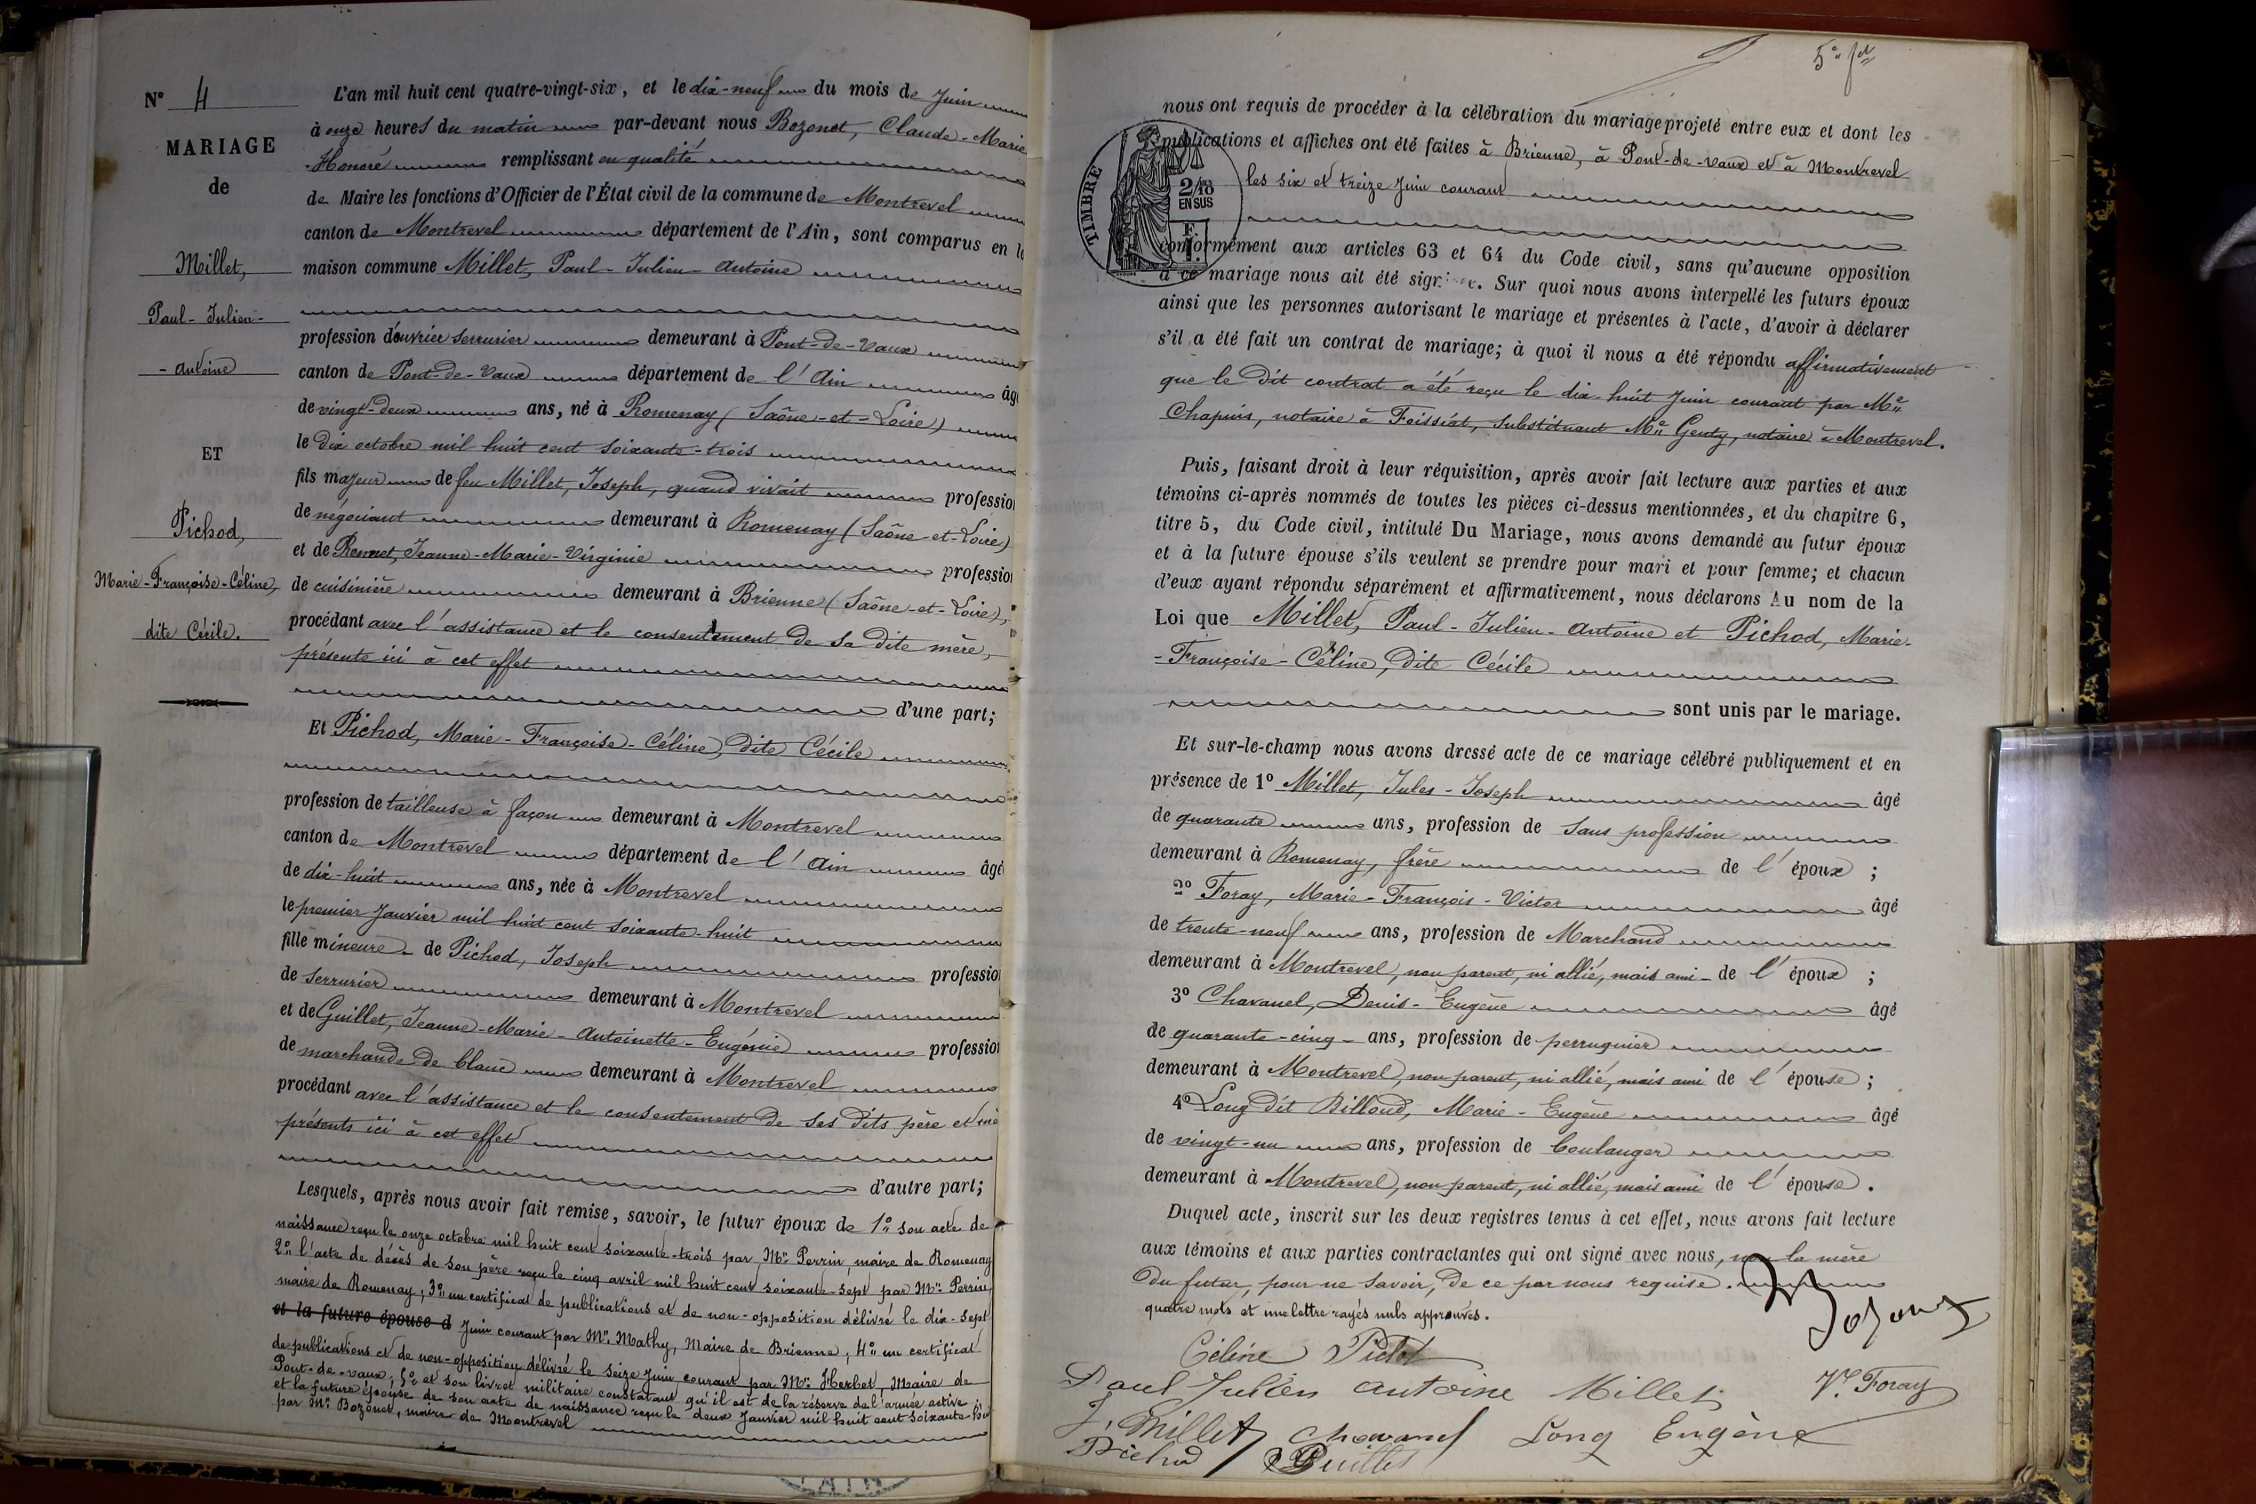 N° 4
MARIAGE
de
Millet,
Paul - Julien -
- Antoine
ET
Pichod,
Marie - Françoise - Céline,
dite Cécile.
L'an mil huit cent quatre-vingt-six, et le dix-neuf du mois de Juin
à onze heures du matin par-devant nous Bozonet, Claude - Marie
- Honoré remplissant en qualité
de Maire les fonctions d'Officier de l'État civil de la commune de Montrevel
canton de Montrevel département de l'Ain, sont comparus en la
maison commune Millet, Paul - Julien - Antoine
profession d'ouvrier serrurier demeurant à Pont-de-Vaux
canton de Pont-de-Vaux département de l'Ain âgé
de vingt-deux ans, né à Romenay (Saône-et-Loire)
le dix octobre mil huit cent soixante-trois
fils majeur de feu Millet, Joseph, quand vivait profession
de négociant demeurant à Romenay (Saône-et-Loire)
et de Jeanne-Marie-Virginie profession
de cuisinière demeurant à Brienne (Saône-et-Loire),
procédant avec l'assistance et le consentement de sa dite mère,
présente ici à cet effet
d'une part;
Et Pichod, Marie - Françoise - Céline, dite Cécile
profession de tailleuse à façon demeurant à Montrevel
canton de Montrevel département de l'Ain âgé
de dix-huit ans, née à Montrevel
le premier Janvier mil huit cent soixante-huit
fille mineure de Pichod, Joseph profession
de serrurier demeurant à Montrevel
et de Guillet, Jeanne-Marie-Antoinette-Eugénie profession
de marchande de blanc demeurant à Montrevel
procédant avec l'assistance et le consentement de ses dits père et mè
présents ici à cet effet
d'autre part;
Lesquels, après nous avoir fait remise, savoir, le futur époux de 1° son acte de
naissance reçu le onze octobre mil huit cent soixante-trois par Mr Perrin, maire de Romenay
2° l'acte de décès de son père reçu le cinq avril mil huit cent soixante-sept par Mr Perrin,
maire de Romenay, 3° un certificat de publications et de non-opposition délivré le dix-sept
et la future épouse d Juin courant par Mr Mathy, Maire de Brienne, 4° un certificat
de publications et de non-opposition délivré le seize Juin courant par Mr Herbet, Maire de
Pont-de-vaux, 5° et son livret militaire constatant qu'il est de la réserve de l'armée active
et la future épouse de son acte de naissance reçu le deux Janvier mil huit cent soixante-hu
par Mr Bozonet, maire de Montrevel
5e fet
nous ont requis de procéder à la célébration du mariage projeté entre eux et dont les
publications et affiches ont été faites à Brienne, à Pont-de-Vaux et à Montrevel
les six et treize Juin courant
TIMBRE
2/10
EN SUS
conformément aux articles 63 et 64 du Code civil, sans qu'aucune opposition
à ce mariage nous ait été signifiée. Sur quoi nous avons interpellé les futurs époux
ainsi que les personnes autorisant le mariage et présentes à l'acte, d'avoir à déclarer
s'il a été fait un contrat de mariage; à quoi il nous a été répondu affirmativement
que le dit contrat a été reçu le dix-huit Juin courant par Me
Chapuis, notaire à Foissiat, substituant Me Genty, notaire à Montrevel.
Puis, faisant droit à leur réquisition, après avoir fait lecture aux parties et aux
témoins ci-après nommés de toutes les pièces ci-dessus mentionnées, et du chapitre 6,
titre 5, du Code civil, intitulé Du Mariage, nous avons demandé au futur époux
et à la future épouse s'ils veulent se prendre pour mari et pour femme; et chacun
d'eux ayant répondu séparément et affirmativement, nous déclarons Au nom de la
Loi que Millet, Paul - Julien - Antoine et Pichod, Marie-
- Françoise - Céline, dite Cécile
sont unis par le mariage.
Et sur-le-champ nous avons dressé acte de ce mariage célébré publiquement et en
présence de 1° Millet, Jules - Joseph âgé
de quarante ans, profession de sans profession
demeurant à Romenay, frère de l'époux ;
2° Foray, Marie - François - Victor âgé
de trente-neuf ans, profession de Marchand
demeurant à Montrevel, non parent, ni allié, mais ami de l'époux ;
3° Chavanel, Denis - Eugène âgé
de quarante-cinq ans, profession de perruquier
demeurant à Montrevel, non parent, ni allié, mais ami de l'épouse ;
4° Long dit Billoud, Marie - Eugène âgé
de vingt-un ans, profession de boulanger
demeurant à Montrevel, non parent, ni allié, mais ami de l'épouse.
Duquel acte, inscrit sur les deux registres tenus à cet effet, nous avons fait lecture
aux témoins et aux parties contractantes qui ont signé avec nous, non la mère
du futur, pour ne savoir, de ce par nous requise.
quatre mots et une lettre rayés nuls approuvés.
Bozonet
Céline Pichod
Paul Julien Antoine Millet
Vr Foray
J. Millet Chavanel Long Eugène
Pichod Guillet